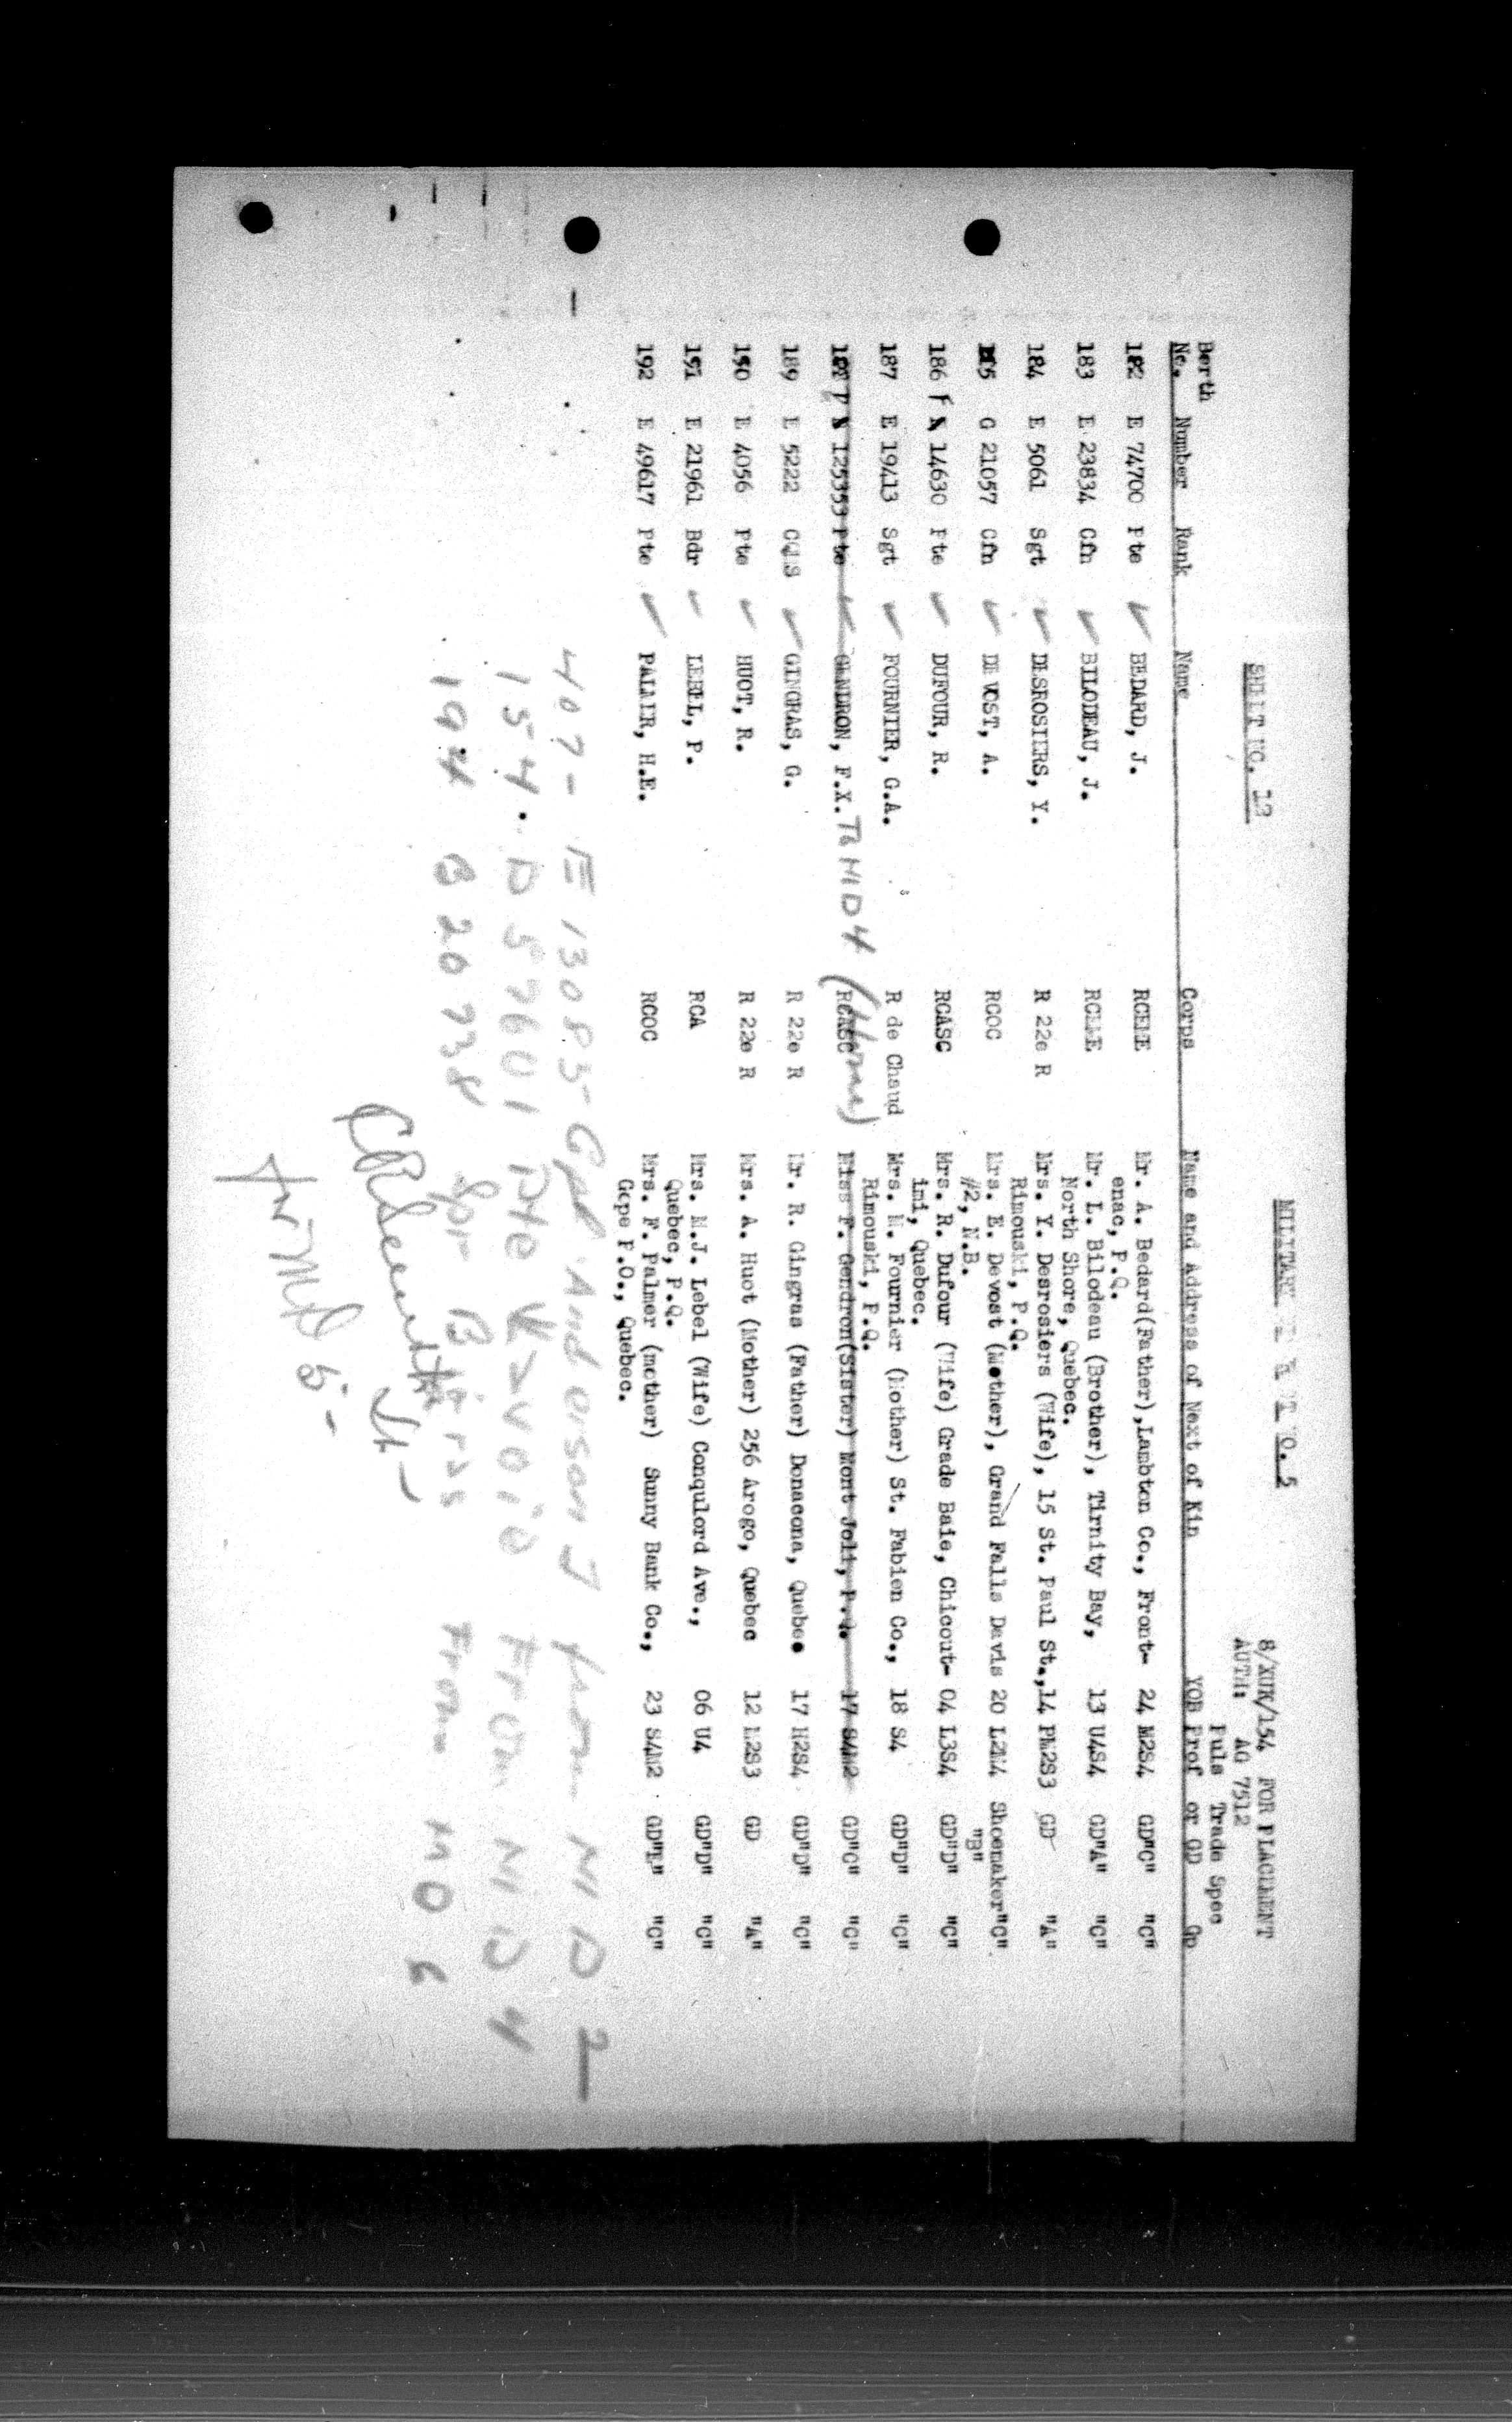 SHEET NO. 13
8/XUK/154 FOR PLACEMENT
AUTH: AG 7512
Berth Puls Trade Spec
No. Number Rank Name Corps Name and Address of Next of Kin YOB Prof or GD Gp
182 E 74700 Pte BEDARD, J. RCEME Mr. A. Bedard(Father),Lambton Co., Front- 24 M2S4 GD"C" "C"
enac, P.Q.
183 E 23834 Cfn BILODEAU, J. RCEME Mr. L. Bilodeau (Brother), Tirnity Bay, 13 U4S4 GD"A" "C"
North Shore, Quebec.
184 E 5061 Sgt DESROSIERS, Y. R 22e R Mrs. Y. Desrosiers (Wife), 15 St. Paul St., 14 PM2S3 GD "A"
Rimouski, P.Q.
185 G 21057 Cfn DE VOST, A. RCOC Mrs. E. Devost (Mother), Grand Falls Davis 20 L2M4 Shoemaker "C"
#2, N.B. "B"
186 F 14630 Pte DUFOUR, R. RCASC Mrs. R. Dufour (Wife) Grade Baie, Chicout- 04 L3S4 GD"D" "C"
imi, Quebec.
187 E 19413 Sgt FOURNIER, G.A. R de Chaud Mrs. M. Fournier (Mother) St. Fabien Co., 18 S4 GD"D" "C"
Rimouski, P.Q.
188 125353 Pte GENDRON, F.X. To MD 4 (Home) RCASC Miss F. Gendron(Sister) Mont Joli, P.Q. 17 S4M2 GD"C" "C"
189 E 5222 CQMS GINGRAS, G. R 22e R Mr. R. Gingras (Father) Donacona, Quebec 17 H2S4 GD"D" "C"
190 E 4056 Pte HUOT, R. R 22e R Mrs. A. Huot (Mother) 256 Arogo, Quebec 12 M2S3 GD "A"
191 E 21961 Bdr LEBEL, P. RCA Mrs. M.J. Lebel (Wife) Conqulord Ave., 06 U4 GD"D" "C"
Quebec, P.Q.
192 E 49617 Pte PALMER, H.E. RCOC Mrs. F. Palmer (mother) Sunny Bank Co., 23 S4M2 GD"E" "C"
Gcpe P.O., Quebec.
407 - E 13083 Gnr Anderson J from MD 2
154. D 57601 Pte From MD 4
194 B 20738 Spr From MD 6